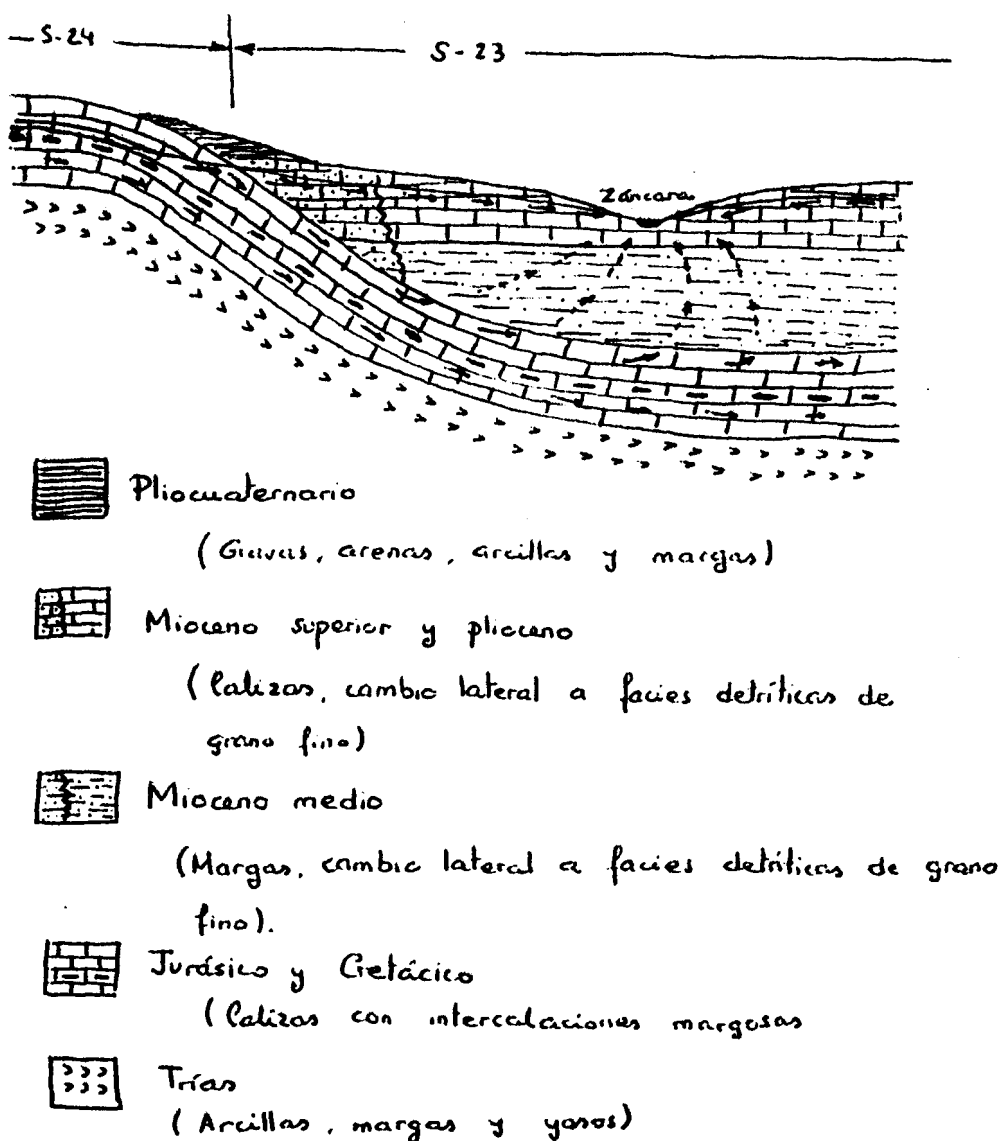 S-24
S-23
Záncara
Pliocuaternario
(Gravas, arenas, arcillas y margas)
Mioceno superior y plioceno
(Calizas, cambio lateral a facies detríticas de
grano fino)
Mioceno medio
(Margas, cambio lateral a facies detríticas de grano
fino).
Jurásico y Cretácico
(Calizas con intercalaciones margosas
Trías
(Arcillas, margas y yesos)